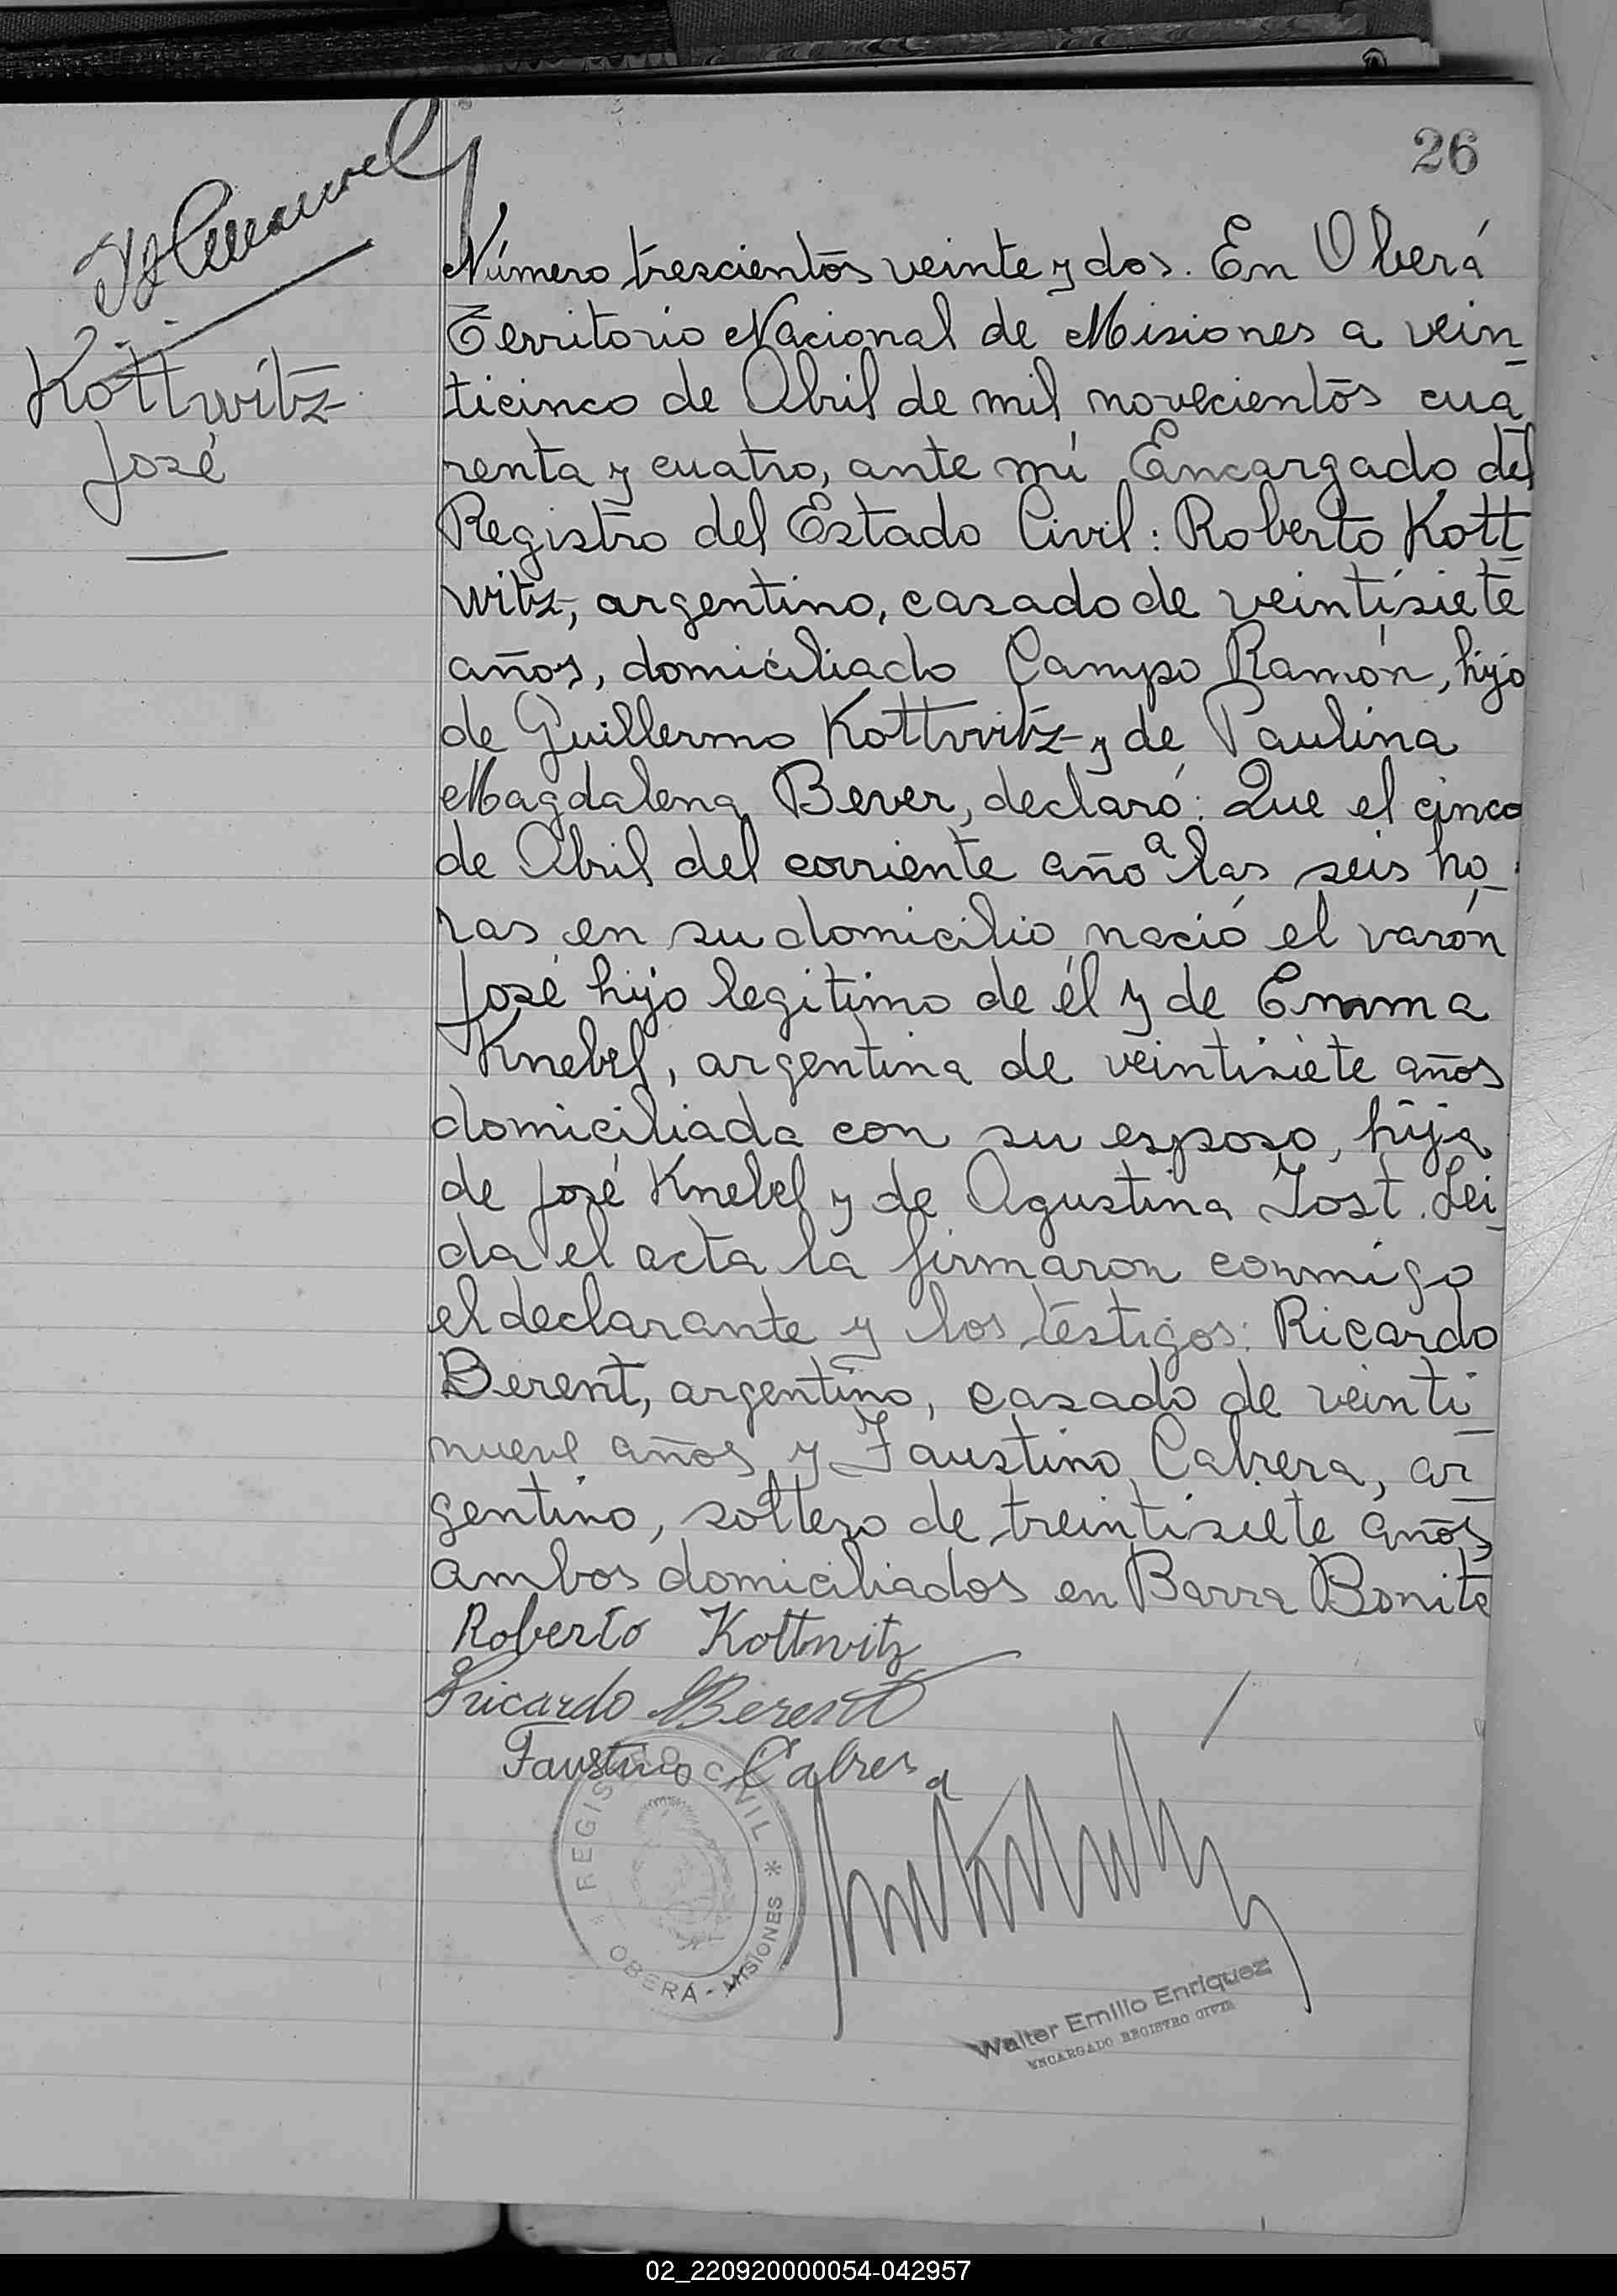 26
Kottwitz
José
Número trescientos veinte y dos. En Oberá
Territorio Nacional de Misiones a vein
ticinco de Abril de mil novecientos cua
renta y cuatro, ante mí Encargado del
Registro del Estado Civil: Roberto Kott
witz, argentino, casado de veintisiete
años, domiciliado Campo Ramón, hijo
de Guillermo Kottwitz y de Paulina
Magdalena Bever, declaró: Que el cinco
de Abril del corriente año a las seis ho
ras en su domicilio nació el varón
José hijo legitimo de él y de Emma
Knebel, argentina de veintisiete años
domiciliada con su esposo, hija
de José Knebel y de Agustina Jost. Lei
da el acta la firmaron conmigo
el declarante y los testigos: Ricardo
Berent, argentino, casado de veinti
nueve años y Faustino Cabrera, ar
gentino, soltero de treintisiete años
ambos domiciliados en Barra Bonita
Roberto Kottwitz
Ricardo Berent
Faustino Cabrera
REGISTRO CIVIL * OBERÁ - MISIONES *
Walter Emilio Enriquez
ENCARGADO REGISTRO CIVIL
02_220920000054-042957